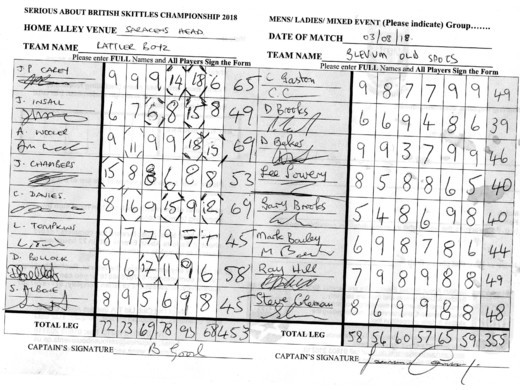 SERIOUS ABOUT BRITISH SKITTLES CHAMPIONSHIP 2018
MENS/ LADIES/ MIXED EVENT (Please indicate) Group.......
HOME ALLEY VENUE SARACENS HEAD
DATE OF MATCH 03/03/18.
TEAM NAME LATTLER BOYZ
TEAM NAME OLD SPOTS
Please enter FULL Names and All Players Sign the Form
Please enter FULL Names and All Players Sign the Form
J.P CAREY 9 9 9 14 18 6 65
C Gaston 9 8 7 7 9 9 49
C C
J. INSALL 6 7 5 8 15 8 49
D Brooks 6 6 9 4 8 6 39
A 9 11 9 9 18 13 69
D Baker 9 9 3 7 9 9 46
J. CHAMBERS 15 8 8 6 8 8 53
Lee Lowery 8 5 8 8 6 5 40
C. DAVIES. 8 16 9 15 9 12 69
Gary Brooks 5 4 8 6 9 8 40
L. TOMPKINS 8 7 7 9 7 7 45
Mark Bailey 6 9 8 7 8 6 44
D. BULLOCK 9 6 17 11 9 6 58
Ray Hill 7 9 8 9 8 8 49
S. 8 9 5 6 9 8 45
Steve Coleman 8 6 9 9 8 8 48
TOTAL LEG 72 73 69 78 93 68 453
TOTAL LEG 58 56 60 57 65 59 355
CAPTAIN'S SIGNATURE B Good
CAPTAIN'S SIGNATURE